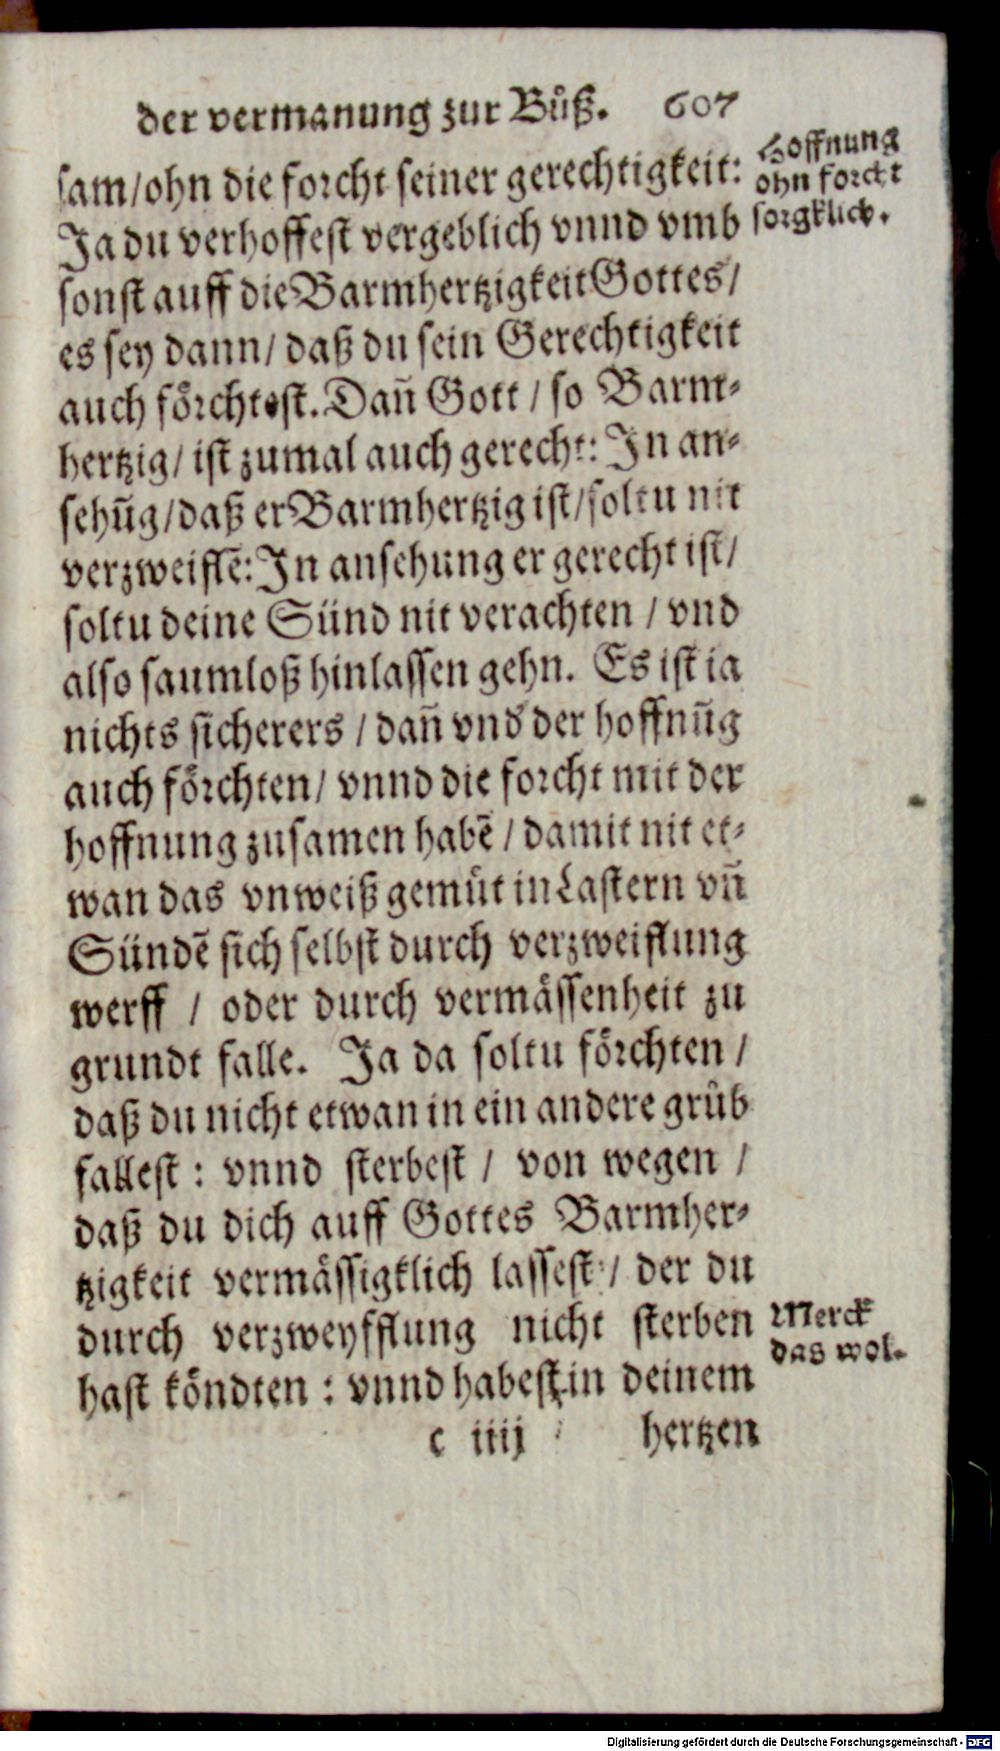 der vermanung zur Bůß. 607
sam/ohn die forcht seiner gerechtigkeit:
Ja du verhoffest vergeblich vnnd vmb
sonst auff die Barmhertzigkeit Gottes/
es sey dann/ daß du sein Gerechtigkeit
auch förchtest. Dañ Gott / so Barm-
hertzig/ ist zumal auch gerecht: In an-
sehũg/daß er Barmhertzig ist/soltu nit
verzweiflẽ: In ansehung er gerecht ist/
soltu deine Sünd nit verachten / vnd
also saumloß hinlassen gehn. Es ist ia
nichts sicherers / dañ vnd der hoffnũg
auch förchten/ vnnd die forcht mit der
hoffnung zusamen habẽ / damit nit et-
wan das vnweiß gemůt in Lastern vñ
Sündẽ sich selbst durch verzweiflung
werff / oder durch vermässenheit zu
grundt falle. Ja da soltu förchten /
daß du nicht etwan in ein andere grůb
fallest : vnnd sterbest / von wegen /
daß du dich auff Gottes Barmher-
tzigkeit vermässigklich lassest / der du
durch verzweyfflung nicht sterben
hast köndten : vnnd habest in deinem
c iiij hertzen
Hoffnung
ohn forcht
sorgklich.
Merck
das wol.
Digitalisierung gefördert durch die Deutsche Forschungsgemeinschaft - DFG